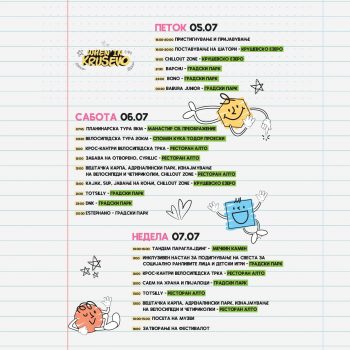 WHEN IN
KRUSEVO
ПЕТОК 05.07
ПРИСТИГНУВАЊЕ И ПРИЈАВУВАЊЕ
ПОСТАВУВАЊЕ НА ШАТОРИ - КРУШЕВСКО ЕЗЕРО
CHILLOUT ZONE - КРУШЕВСКО ЕЗЕРО
ГРАДСКИ ПАРК
BONO - ГРАДСКИ ПАРК
BABURA JUNIOR - ГРАДСКИ ПАРК
САБОТА 06.07
ПЛАНИНАРСКА ТУРА 8KM - МАНАСТИР СВ. ПРЕОБРАЖЕНИЕ
ВЕЛОСИПЕДСКА ТУРА - СПОМЕН КУЌА ТОДОР ПРОЕСКИ
КРОС-КАНТРИ ВЕЛОСИПЕДСКА ТРКА - РЕСТОРАН АЛТО
ЗАБАВА НА ОТВОРЕНО, CYRILLIC - РЕСТОРАН АЛТО
ВЕШТАЧКА КАРПА, АДРЕНАЛИНСКИ ПАРК, ИЗНАЈМУВАЊЕ
НА ВЕЛОСИПЕДИ И ЧЕТИРИКОЛКИ, CHILLOUT ZONE - РЕСТОРАН АЛТО
КАЈАК, SUP, ЈАВАЊЕ НА КОЊИ, CHILLOUT ZONE - КРУШЕВСКО ЕЗЕРО
TOTSILLY - ГРАДСКИ ПАРК
ГРАДСКИ ПАРК
ESTERHANO - ГРАДСКИ ПАРК
НЕДЕЛА 07.07
ТАНДЕМ ПАРАГЛАЈДИНГ - МЕЧКИН КАМЕН
ИНКЛУЗИВЕН НАСТАН ЗА ПОДИГНУВАЊЕ НА СВЕСТА ЗА
СОЦИЈАЛНО РАНЛИВИТЕ ЛИЦА И ДЕТСКИ ИГРИ - ГРАДСКИ ПАРК
КРОС-КАНТРИ ВЕЛОСИПЕДСКА ТРКА - РЕСТОРАН АЛТО
САЕМ НА ХРАНА И ПИЈАЛОЦИ - ГРАДСКИ ПАРК
TOTSILLY - РЕСТОРАН АЛТО
ВЕШТАЧКА КАРПА, АДРЕНАЛИНСКИ ПАРК, ИЗНАЈМУВАЊЕ
НА ВЕЛОСИПЕДИ И ЧЕТИРИКОЛКИ - РЕСТОРАН АЛТО
ПОСЕТА НА МУЗЕИ
ЗАТВОРАЊЕ НА ФЕСТИВАЛОТ